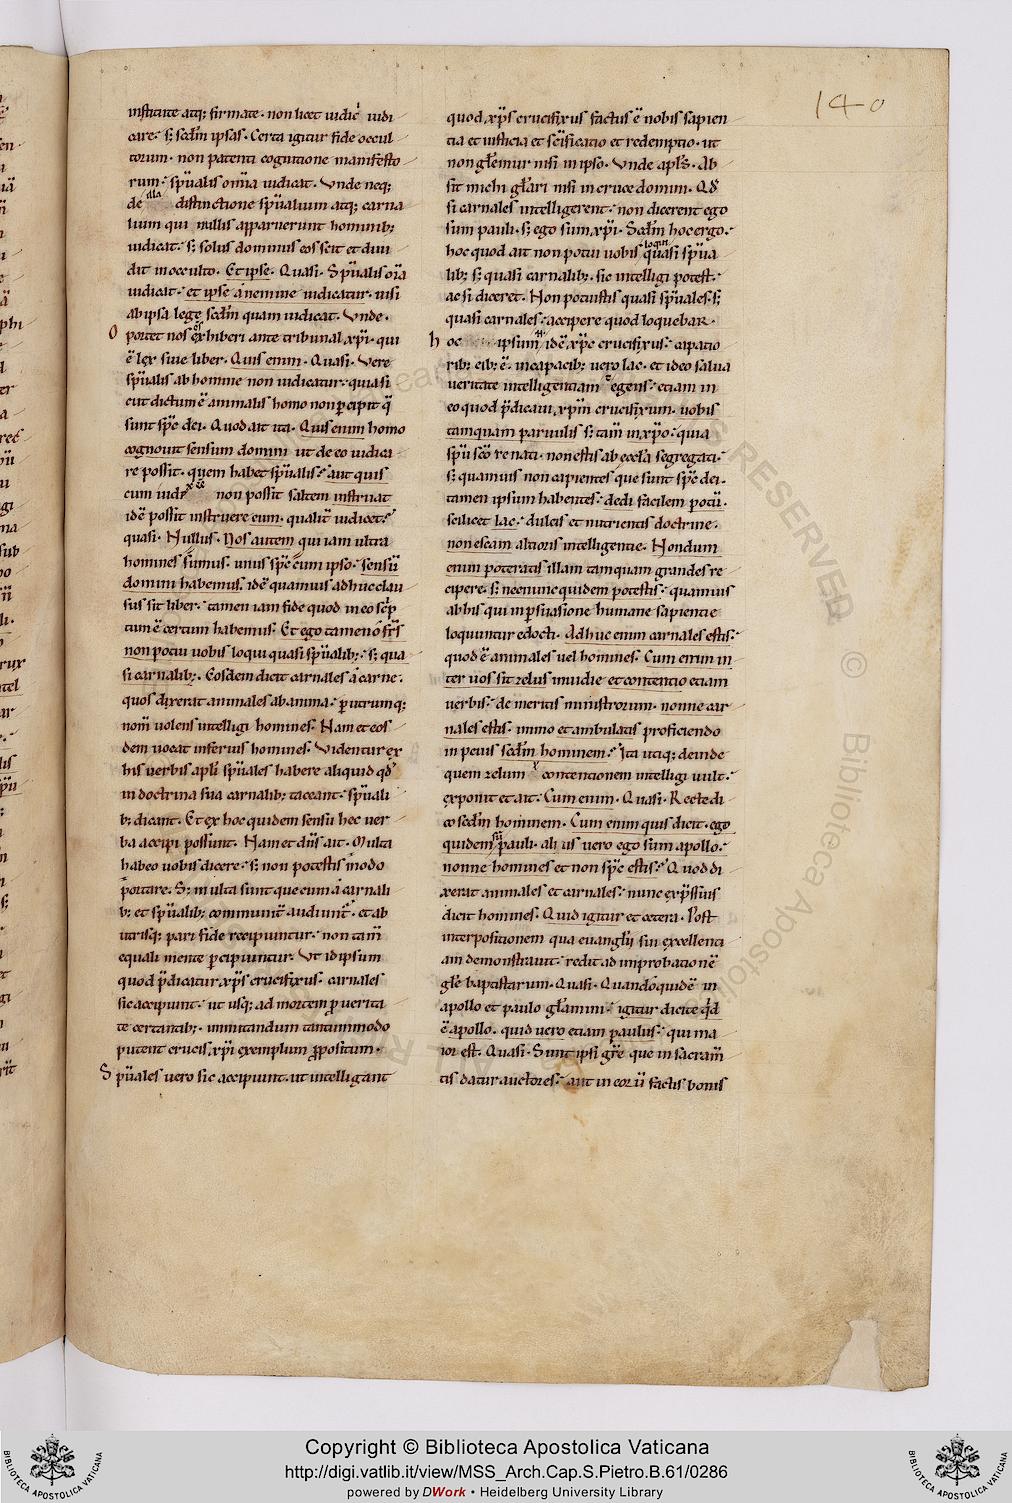 140
institute atq; firmate. non licet iudici iudi
care. s; sc̄dm ipsas. Certa igitur fide occul
torum. non patenti cognitione manifesto
rum. sp̄ualis om̄ia iudicat. Vnde neq;
de illa distinctione sp̄ualium atq; carna
lium qui nullis apparuerunt hominib;
iudicat. s; solus dominus eos scit et diui
dit in occulto. Et ipse. Quasi. Sp̄ualis oīa
iudicat. et ipse a nemine iudicatur. nisi
ab ipsa lege sc̄dm quam iudicat. Vnde.
O portet nos os exhiberi ante tribunal xp̄i. qui
ē lex siue liber. Quis enim. Quasi. Vere
sp̄ualis ab homine non iudicatur. quia si
cut dictum ē animalis homo non percipit q̄
sunt sp̄c dei. Quod ait ita. Quis enim homo
cognouit sensum domini ut de eo iudica
re possit. quem habet sp̄ualis. aut quis
cum iudex non possit saltem instruat
idē possit instruere eum. qualit̄ iudicet.
quasi. Nullus. Nos autem qui iam ultra
homines sumus. unus sp̄c cum ipso. sensū
domini habemus. idē quamuis adhuc clau
sus sit liber. tamen iam fide quod in eo sc̄p
tum ē certum habemus. Et ego tamen ō fr̄s
non potui uobis loqui quasi sp̄ualib;. s; qua
si carnalib;. Eosdem dicit carnales a carne.
quos dixerat animales ab anima. per utrumq;
nom̄ uolens intelligi homines. Nam et eos
dem uocat inferius homines. Videntur ex
his uerbis apl̄i sp̄uales habere aliquid qd̄
in doctrina sua carnalib; taceant. sp̄uali
b; dicant. Et ex hoc quidem sensu hec uer
ba accipi possunt. Nam et dn̄s ait. Multa
habeo uobis dicere. s; non potestis modo
portare. S; multa sunt que cum a carnali
b; et sp̄ualib; communit̄ audiunt̄. et ab
utrisq; pari fide recipiuntur. non tam̄
equali mente percipiuntur. Vt id ipsum
quod p̄dicatur xp̄s crucifixus. carnales
sic accipiunt. ut usq; ad mortem p uerita
te certantib;. imitandum tantummodo
putent crucis xp̄i exemplum propositum.
S p̄uales uero sic accipiunt. ut intelligant
quod xp̄s crucifixus factus ē nobis sapien
tia et iusticia et sc̄ificatio et redemptio. ut
non gl̄emur nisi in ipso. Vnde apl̄s. Ab
sit michi gl̄ari nisi in cruce domini. Qd̄
si carnales intelligerent. non dicerent ego
sum pauli. s; ego sum xp̄i. Sc̄dm hoc ergo.
hoc quod ait non potui uobis loqui quasi sp̄ua
lib; s; quasi carnalib;. sic intelligi potest.
ac si diceret. Non potuistis quasi sp̄uales. s;
quasi carnales. accipere quod loquebar.
h oc ipsum idē xp̄c crucifixus. capatio
rib; cib; ē. incapacib; uero lac. et ideo salua
ueritate intelligentiam egens. etiam in
eo quod p̄dicaui xp̄m crucifixum. uobis
tamquam paruulis s; tam̄ in xp̄o. quia
sp̄u sc̄o renati. non estis ab eccl̄a segregati.
s; quamuis non capientes que sunt sp̄c dei.
tamen ipsum habentes. dedi facilem potū.
scilicet lac. dulcis et nutrientis doctrine.
non escam altioris intelligentie. Nondum
enim poteratis illam tamquam grandes re
cipere. s; nec nunc quidem potestis. quamuis
ab his qui in persuasione humane sapientie
loquuntur edocti. Adhuc enim carnales estis.
quod ē animales uel homines. Cum enim in
ter uos sit zelus inuidie et contentio etiam
uerbis. de meritis ministrorum. nonne car
nales estis. immo et ambulatis proficiendo
in peius sc̄dm hominem. Ita utiq; deinde
quem zelum contentionem intelligi uult.
exponit et ait. Cum enim. Quasi. Recte di
co sc̄dm hominem. Cum enim quis dicit. ego
quidem sū pauli. alius uero ego sum apollo.
nonne homines et non sp̄c estis. Quod di
xerat animales et carnales. nunc exp̄ssius
dicit homines. Quid igitur et cetera. Post
interpositionem qua euangl̄ii sui excellenti
am demonstrauit. redit ad improbationē
gl̄e baptistarum. Quasi. Quandoquidē in
apollo et paulo gl̄amini. igitur dicite qd̄
ē apollo. quid uero etiam paulus. qui ma
ior est. Quasi. Sunt ipsi gr̄e que in sacram̄
tis datur auctores. aut in eorū factis bonis
Copyright © Biblioteca Apostolica Vaticana
http://digi.vatlib.it/view/MSS_Arch.Cap.S.Pietro.B.61/0286
powered by DWork • Heidelberg University Library